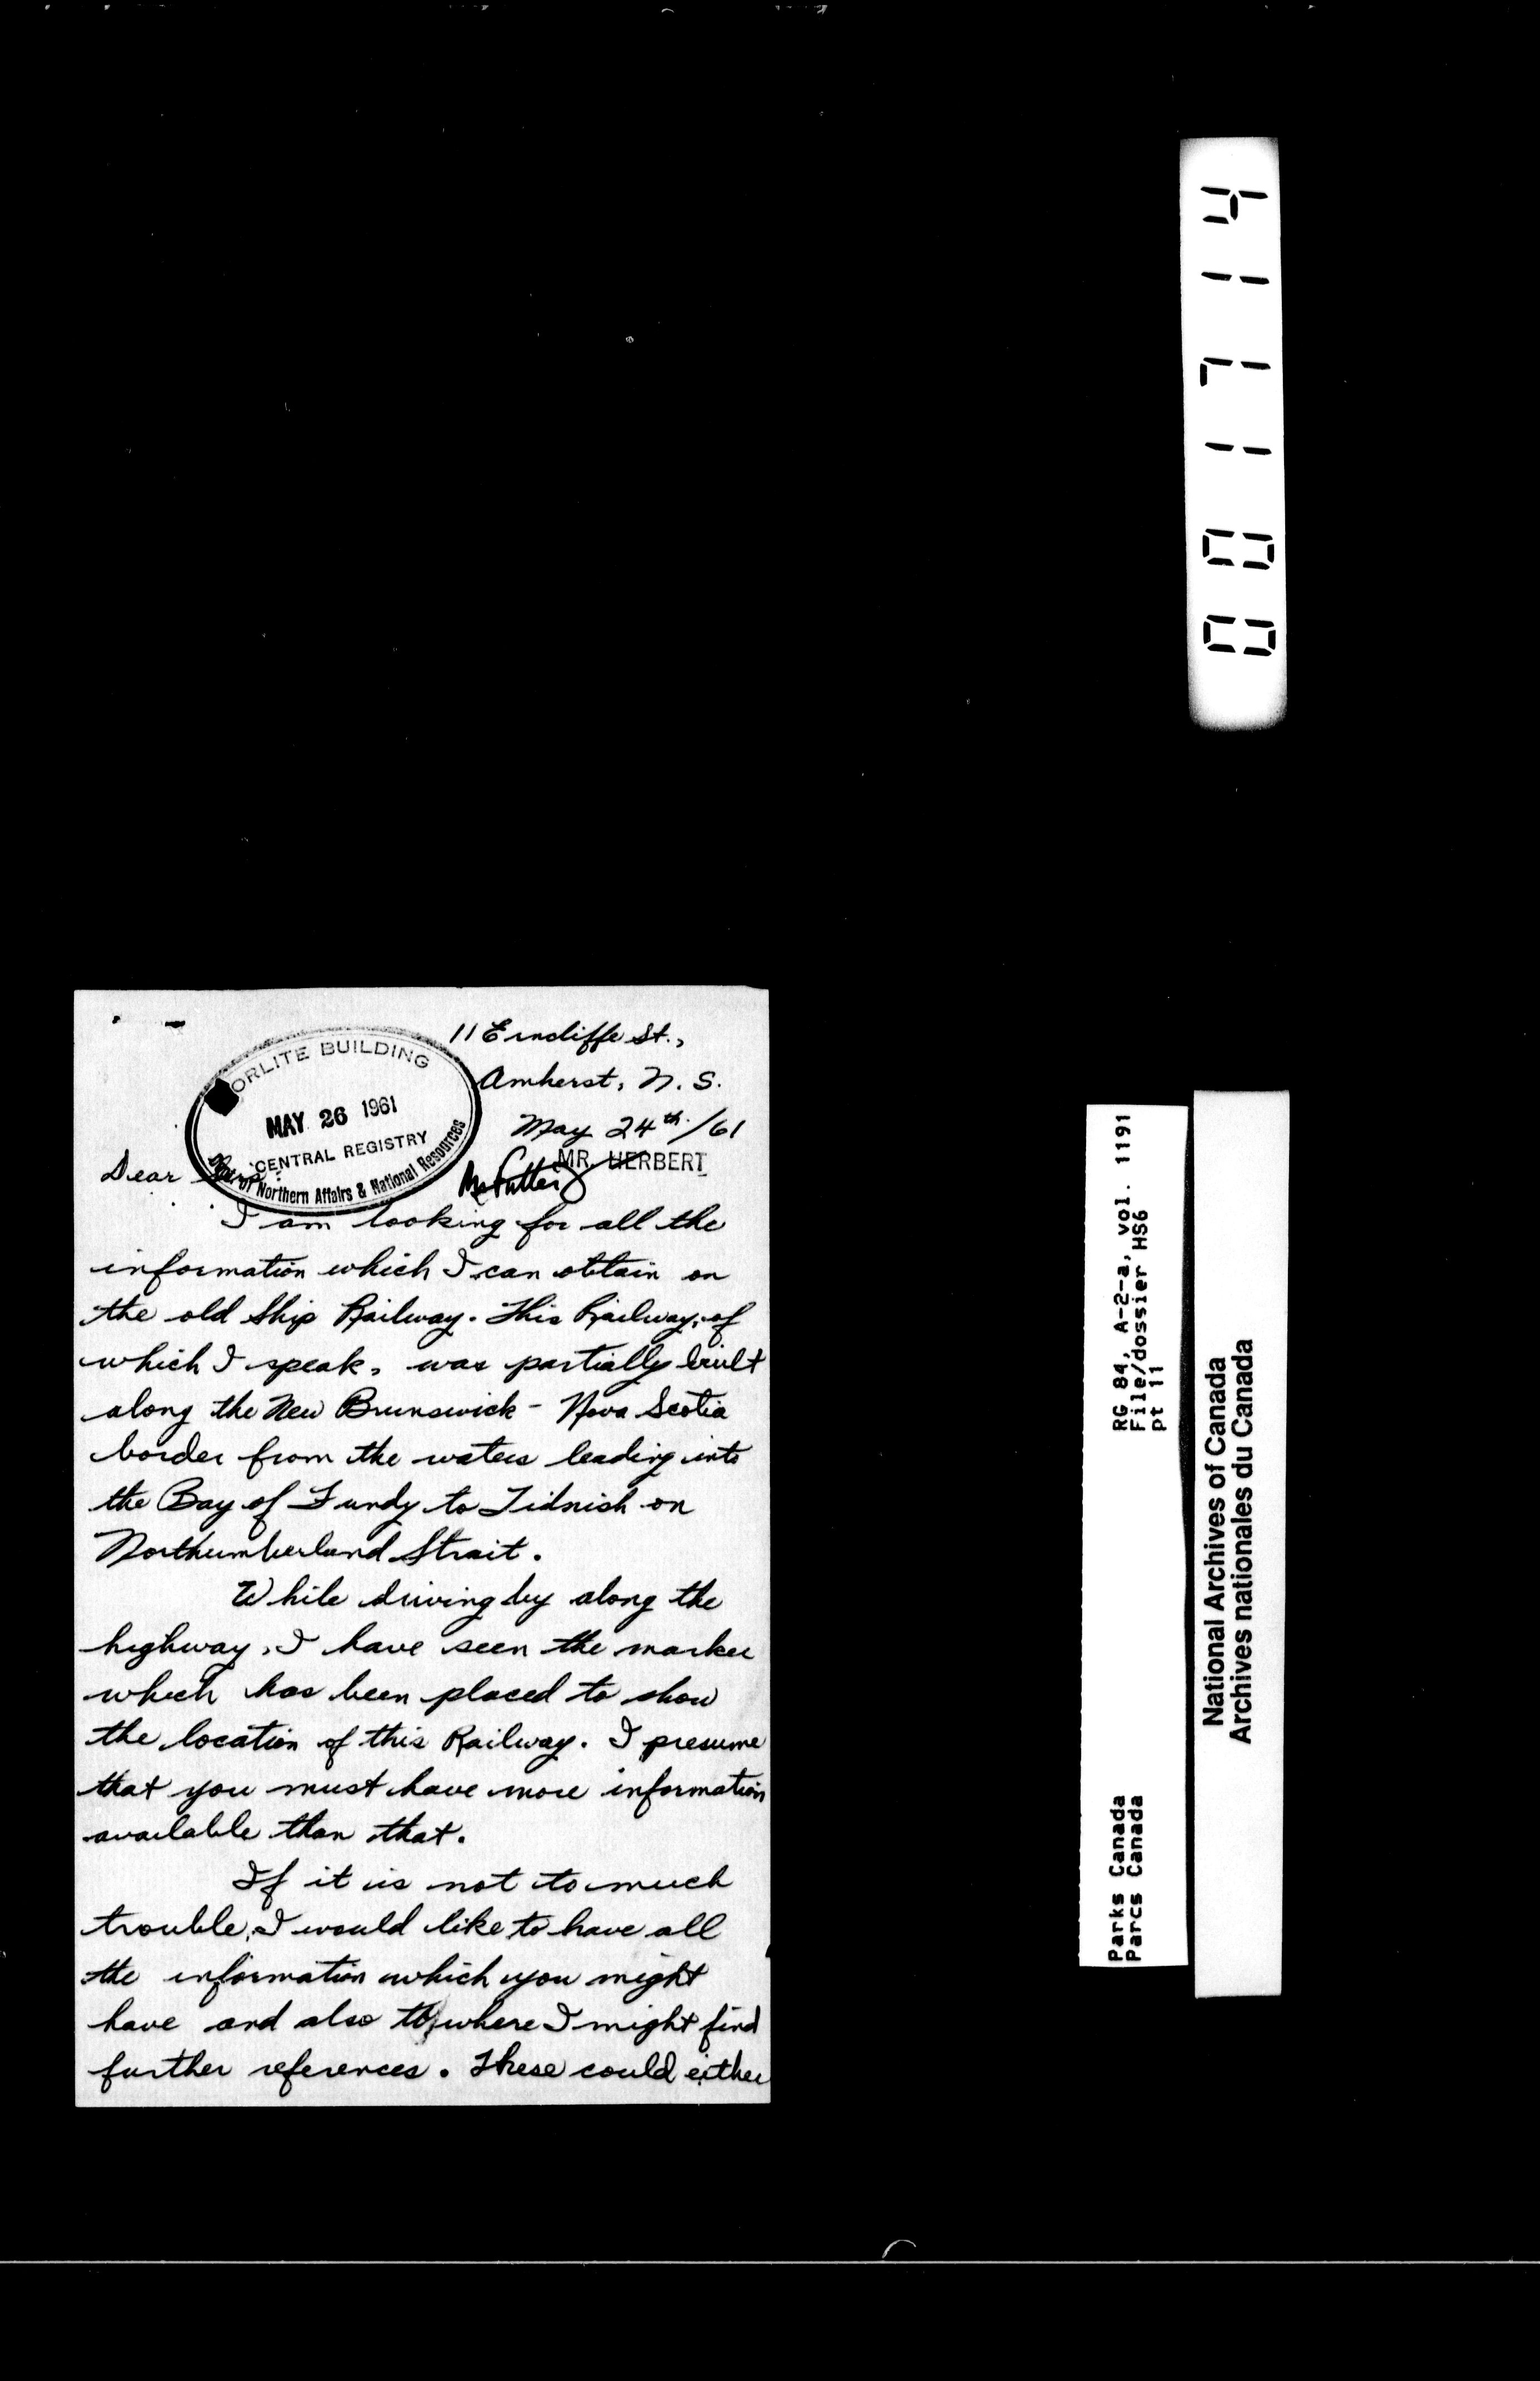 11 Erncliffe St.,
Amherst, N. S.
May 24th./61
ORLITE BUILDING
MAY 26 1961
CENTRAL REGISTRY
Dept. of Northern Affairs & National Resources
MR. HERBERT
Dear
I am looking for all the
information which I can obtain on
the old Ship Railway. This Railway, of
which I speak, was partially built
along the New Brunswick - Nova Scotia
border from the waters leading into
the Bay of Fundy to Tidnish on
Northumberland Strait.
While driving by along the
highway, I have seen the marker
which has been placed to show
the location of this Railway. I presume
that you must have more information
available than that.
If it is not to much
trouble, I would like to have all
the information which you might
have and also to where I might find
further references. These could either
RG 84, A-2-a, vol. 1191
File/dossier HS6
pt 11
Parks Canada
Parcs Canada
National Archives of Canada
Archives nationales du Canada